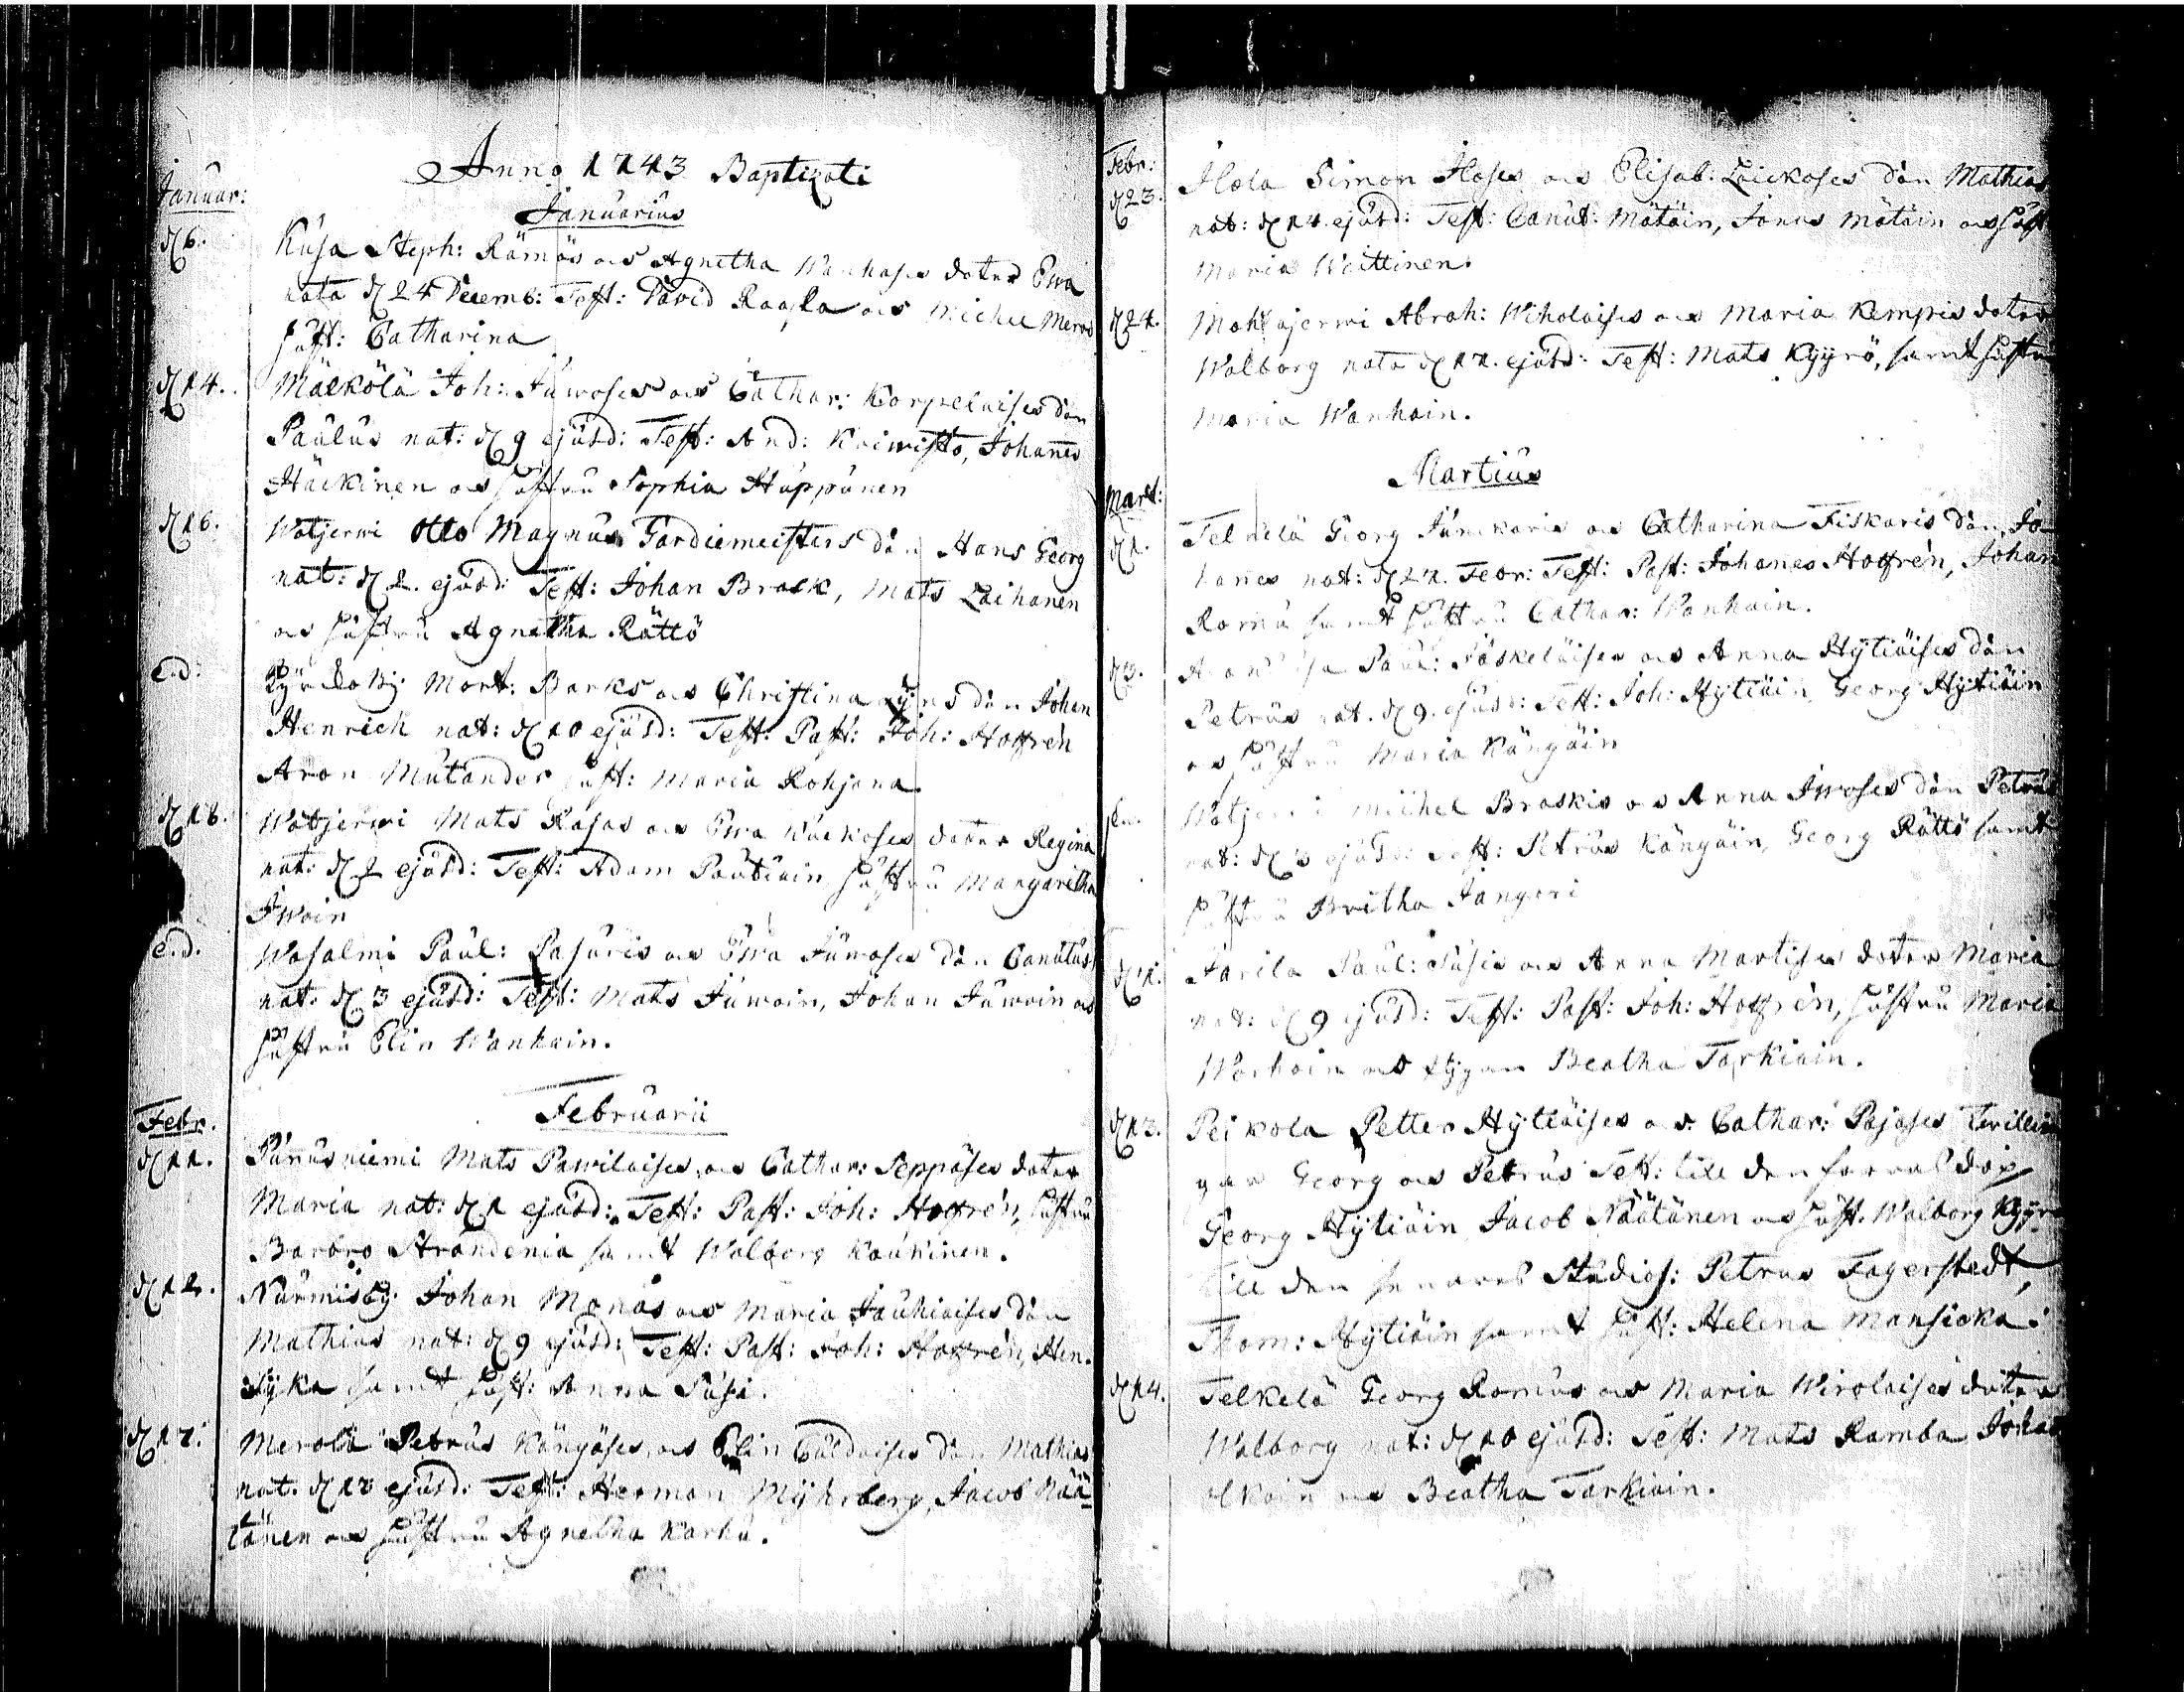 Anno 1743 Baptizati
Januar:
Januarius
d 6. Kusa Steph: Rämös och Agnetha Wanhases doter Ewa
nata d 24 Decemb: Test: David Raaska och Michel Meros
hust: Catharina
d 14. Mälkölä Joh: Juwoses och Cathar: Korpelaises dån
Paulus nat: d 9 ejusd: Test: And: Koiwisto, Johanes
Häckinen och hustru Sophia Huppunen
d 16. Watjerwi Otto Magnus Gardiemeisters dån Hans Georg
nat: d 2. ejusd: Test: Johan Brask, Mats Laihanen
och hustru Agnetha Rättö
e.d. Mart: Barks och Christina dån Johan
Henrich nat: d 10 ejusd: Test: Past: Joh: Hoffrén
Aron Mutander hust: Maria Rohjana
d 18. Watjerwi Mats Räsäs och Ewa Kuckoses doter Regina
nat: d 2 ejusd: Test: Adam Pautiain hustru Margaretha
Iwoin
e.d. Wasalmi Paul: Pasuris och Ewa Juwoses dån Canutus
nat. d 3 ejusd: Test: Mats Juwoin, Johan Juwoin och
hustru Elin Wanhain.
Febr.
Februarii
d 11. Punnusniemi Mats Pawilaises och Cathar: Seppäses doter
Maria nat: d 1 ejusd: Test: Past: Joh: Hoffrén, hustru
Barbro Strandenia samt Walborg Kaukinen.
d 12. Nurmisby Johan Monäs och Maria Jauhiaises dån
Mathias nat: d 9 ejusd: Test: Past: Joh: Hoffrén, Hen.
Syka samt hust: Anna Susi.
d 17. Merola Petrus Kängäses och Elin Culdaises dån Mathias
nat. d 12 ejusd: Test: Herman Myhrberg, Jacob Nää-
tänen och hustru Agnetha Karhu.
Febr:
d 23. Ilola Simon Iloses och Elisab: Leickoses dån Mathias
nat: d 14. ejusd: Test: Canut: Mätäin, Jonas Mätäin och hust
Maria Weittinen.
d 24. Mahlajerwi Abrah: Wiholaises och Maria Kempis doter
Walborg nata d 17. ejusd: Test: Mats Kyyrö, samt hustru
Maria Wanhain.
Martius
Mart:
d 1. Telkelä Georg Junikaris och Catharina Fiskaris dån Jo-
hannes nat: d 27. Febr: Test: Past: Johannes Hoffrén, Johan
Romu samt hustru Cathar: Wanhain.
d 3. Paul: Jäskeläises och Anna Hytiäises dån
Petrus nat. d 9. ejusd: Test: Joh: Hytiäin, Georg Hytiäin
och hustru Maria Kängäin
Watjerwi Michel Braskis och Anna Iwoses dån Petrus
nat: d 3 ejusd: Test: Petrus Kängäin, Georg Rättö samt
hustru Britha Jangeri
d 11. Jarila Paul: Susis och Anna Martises doter Maria
nat: d 9 ejusd: Test: Past: Joh: Hoffrén, hustru Maria
Wanhain och pigan Beatha Tarkiain.
d 13. Peikola Petter Hytiäises och Cathar: Pajases twillin
gar Georg och Petrus Test: till den förra
Georg Hytiäin Jacob Näätänen och hust. Walborg Kyyrö
till den senares Studios: Petrus Fagerstedt,
Thom: Hytiäin samt hust: Helena Mansicka.
d 14. Telkelä Georg Romus och Maria Wirolaises doter
Walborg nat: d 10 ejusd: Test: Mats Ramba Johan
och Beatha Tarkiain.